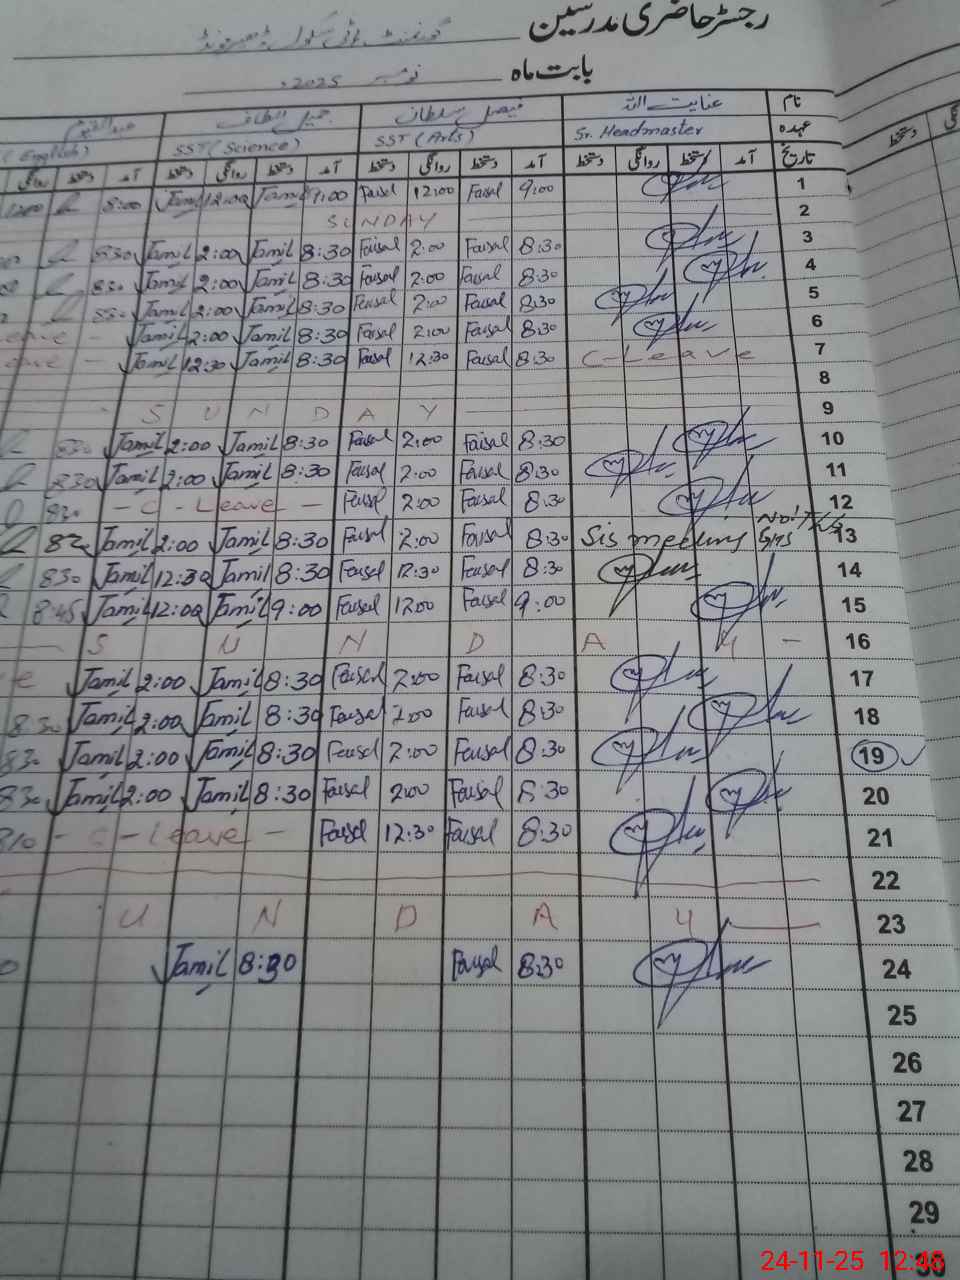 رجسٹر حاضری مدرسین
گورنمنٹ ہائی سکول
بابت ماہ نومبر 2025ء
نام عنایت اللہ فیصل سلطان جمیل الطاف
عہدہ Sr. Headmaster SST (Arts) SST (Science) (English)
تاریخ آمد دستخط روانگی دستخط آمد دستخط روانگی دستخط آمد دستخط روانگی دستخط آمد دستخط روانگی
1 9:00 Faisal 12:00 Faisal 9:00 Jamil 12:00 Jamil 9:00
2 SUNDAY
3 8:30 Faisal 2:00 Faisal 8:30 Jamil 2:00 Jamil 830
4 8:30 Faisal 2:00 Faisal 8:30 Jamil 2:00 Jamil 830
5 8:30 Faisal 2:00 Faisal 8:30 Jamil 2:00 Jamil 830
6 8:30 Faisal 2:00 Faisal 8:30 Jamil 2:00 Jamil
7 C-Leave 8:30 Faisal 12:30 Faisal 8:30 Jamil 12:30 Jamil
8
9 SUNDAY
10 8:30 Faisal 2:00 Faisal 8:30 Jamil 2:00 Jamil 830
11 8:30 Faisal 2:00 Faisal 8:30 Jamil 2:00 Jamil 830
12 8:30 Faisal 2:00 Faisal - C - Leave - 830
13 Sis meeting 8:30 Faisal 2:00 Faisal 8:30 Jamil 2:00 Jamil
14 8:30 Faisal 12:30 Faisal 8:30 Jamil 12:30 Jamil 830
15 9:00 Faisal 12:00 Faisal 9:00 Jamil 12:00 Jamil 8:45
16 SUNDAY
17 8:30 Faisal 2:00 Faisal 8:30 Jamil 2:00 Jamil
18 8:30 Faisal 2:00 Faisal 8:30 Jamil 2:00 Jamil 8:30
19 8:30 Faisal 2:00 Faisal 8:30 Jamil 2:00 Jamil 830
20 8:30 Faisal 2:00 Faisal 8:30 Jamil 2:00 Jamil 830
21 8:30 Faisal 12:30 Faisal - C - Leave -
22
23 UNDAY
24 8:30 Faisal 8:30 Jamil
25
26
27
28
29
30
24-11-25 12:48